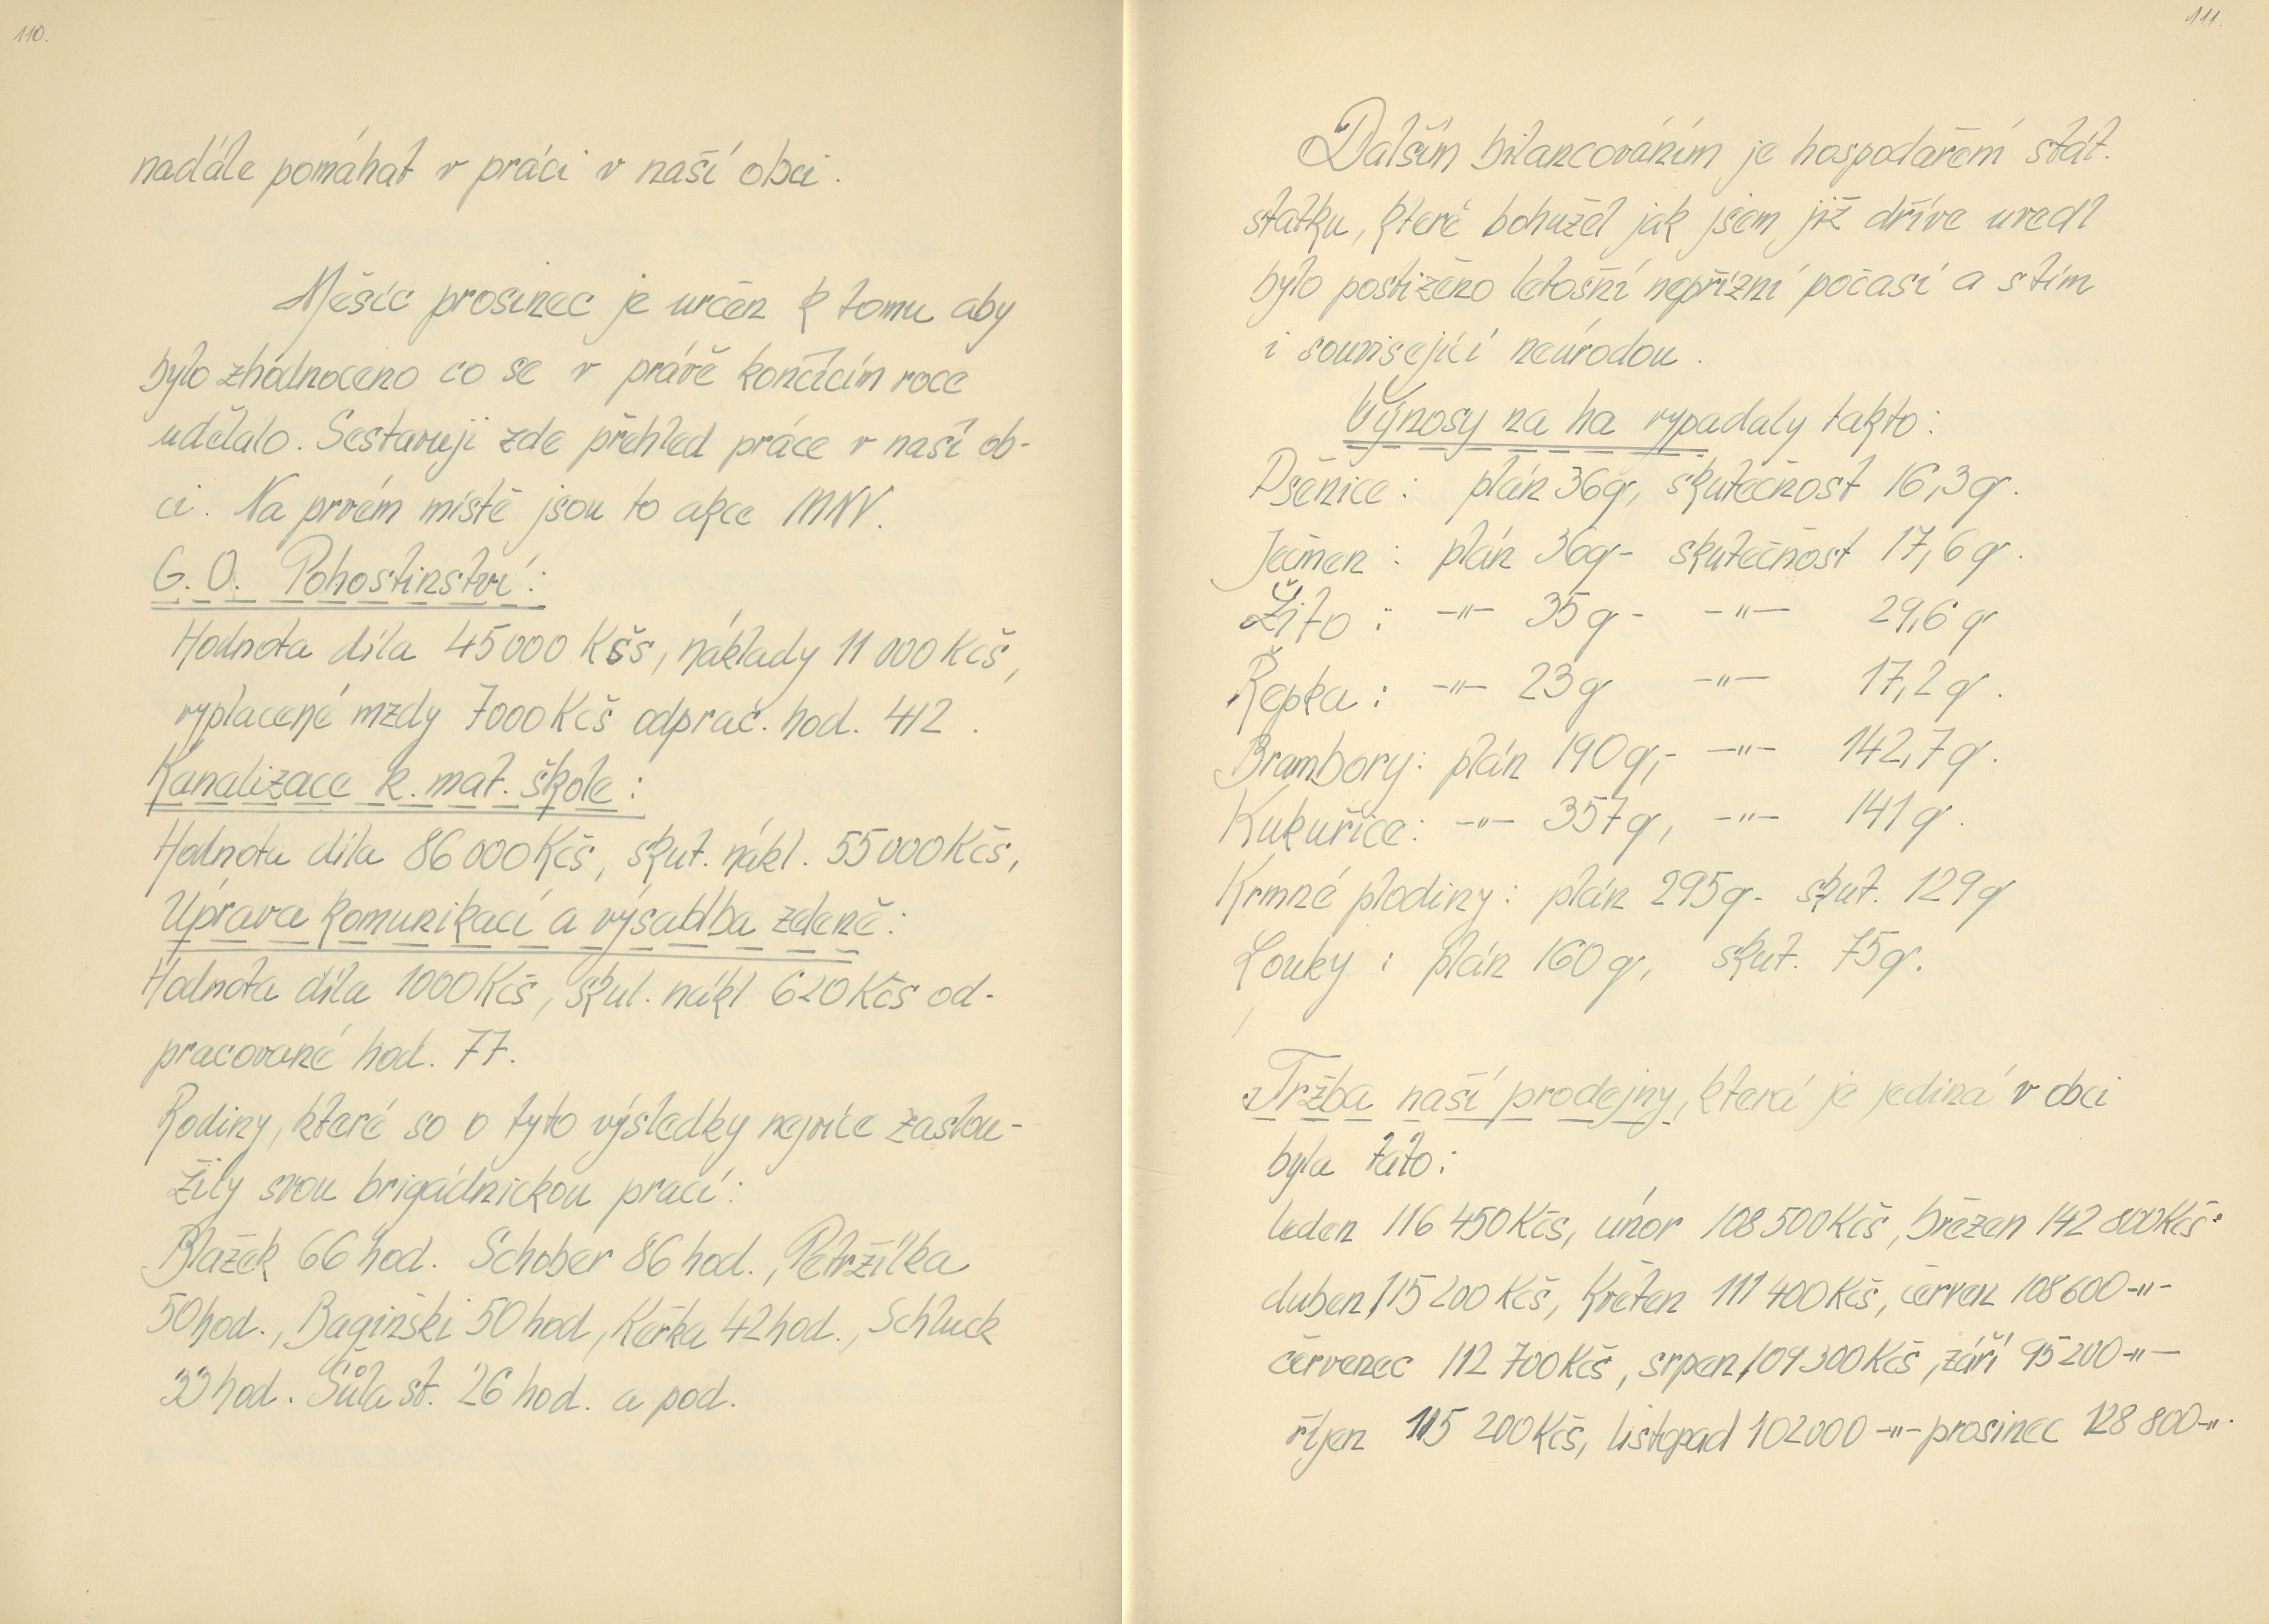 110.
nadále pomáhat v práci v naší obci.
Měsíc prosinec je určen k tomu aby
bylo zhodnoceno co se v právě končícím roce
udělalo. Sestavuji zde přehled práce v naší ob-
ci. Na prvém místě jsou to akce MNV.
G.O. Pohostinství:
Hodnota díla 45000 Kčs, náklady 11 000 Kčš,
vyplacené mzdy 7000 Kčš odprac. hod. 412.
Kanalizace k. mat. škole:
Hodnota díla 86 000 Kčs, skut. nákl. 55 000 Kčs,
Úprava komunikací a výsadba zeleně:
Hodnota díla 1000 Kčs, skut. nákl 620 Kčs od-
pracované hod. 77.
Rodiny, které so o tyto výsledky nejvíce zaslou-
žily svou brigádnickou prací:
Blažek 66 hod. Schober 86 hod., Petržílka
50 hod., Baginski 50 hod, Kerka 42 hod., Schluck
33 hod. Šůla st. 26 hod. a pod.
111.
Dalším bilancováním je hospodaření stát.
statku, které bohužel jak jsem již dříve uvedl
bylo postiženo letošní nepřízní počasí a s tím
i související neúrodou.
Výnosy na ha vypadaly takto:
Pšenice: plán 36q, skutečnost 16,3q.
Ječmen: plán 36q- skutečnost 17,6q.
Žito: -"- 35q- -"- 29,6q
Řepka: -"- 23q -"- 17,2q.
Brambory: plán 190q,- -"- 142,7q.
Kukuřice: -"- 357q, -"- 141q.
Krmné plodiny: plán 295q- skut. 129q
Louky: plán 160q, skut. 75q.
Tržba naší prodejny, která je jediná v obci
byla tato:
leden 116 450 Kčs, únor 108 500 Kčš, březen 142 800 Kčš
duben 115 200 Kčš, květen 111 400 Kčš, červen 108 600 -"-
červenec 112 700 Kčš, srpen 109 300 Kčš, září 95 200 -"-
říjen 115 200 Kčs, listopad 102000 -"- prosinec 128 800 -"-